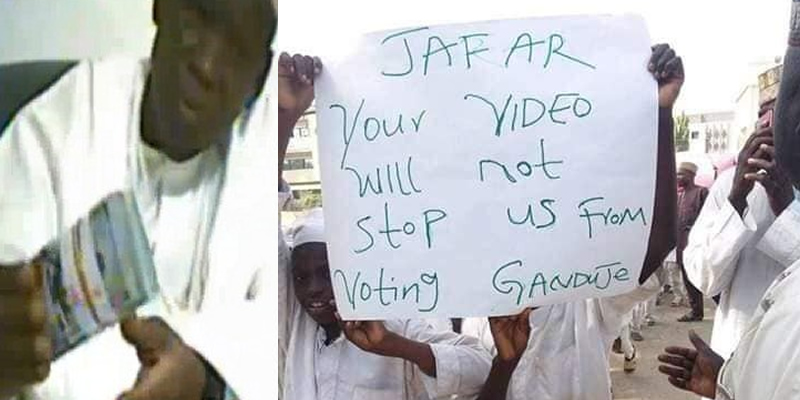 JAFAR
Your VIDEO
will not
stop us From
Voting GANDUJe